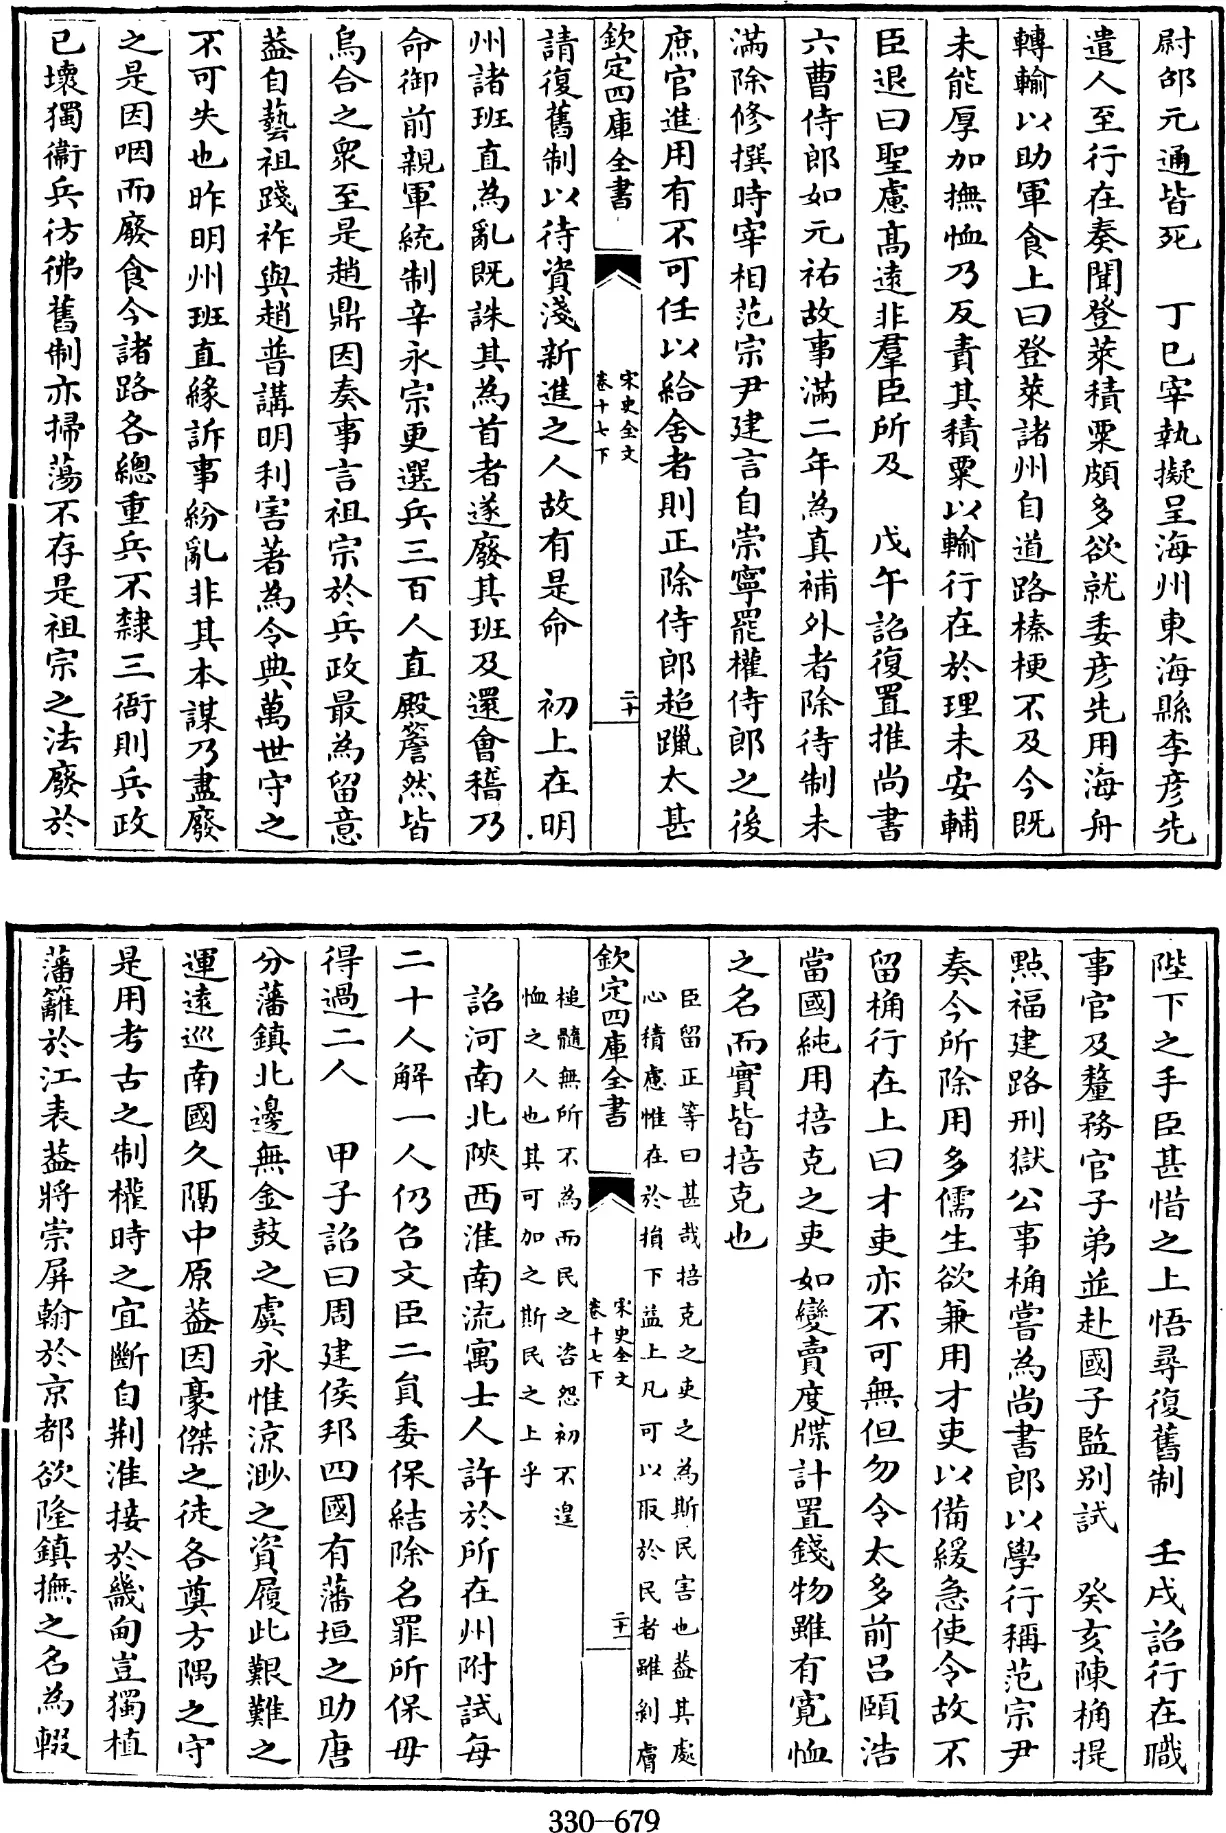 尉邵元通皆死　丁巳宰執擬呈海州東海縣李彥先
遣人至行在奏聞登萊積粟頗多欲就委彥先用海舟
轉輸以助軍食上曰登萊諸州自道路榛梗不及今既
未能厚加撫恤乃反責其積粟以輸行在於理未安輔
臣退曰聖慮高遠非羣臣所及　戊午詔復置推尚書
六曹侍郎如元祐故事滿二年為真補外者除待制未
滿除修撰時宰相范宗尹建言自崇寧罷權侍郎之後
庶官進用有不可任以給舍者則正除侍郎超躐太甚
欽定四庫全書
宋史全文
卷十七下
二十
請復舊制以待資淺新進之人故有是命　初上在明
州諸班直為亂既誅其為首者遂廢其班及還會稽乃
命御前親軍統制辛永宗更選兵三百人直殿簷然皆
烏合之衆至是趙鼎因奏事言祖宗於兵政最為留意
葢自藝祖踐祚與趙普講明利害著為令典萬世守之
不可失也昨明州班直緣訴事紛亂非其本謀乃盡廢
之是因咽而廢食今諸路各總重兵不隸三衙則兵政
已壞獨衞兵彷彿舊制亦掃蕩不存是祖宗之法廢於
陛下之手臣甚惜之上悟尋復舊制　壬戌詔行在職
事官及釐務官子弟並赴國子監别試　癸亥陳桷提
㸃福建路刑獄公事桷嘗為尚書郎以學行稱范宗尹
奏今所除用多儒生欲兼用才吏以備緩急使令故不
留桷行在上曰才吏亦不可無但勿令太多前呂頤浩
當國純用掊克之吏如變賣度牒計置錢物雖有寛恤
之名而實皆掊克也
臣留正等曰甚哉掊克之吏之為斯民害也葢其處
心積慮惟在於損下益上凡可以取於民者雖剝膚
欽定四庫全書
宋史全文
卷十七下
二十一
槌髓無所不為而民之咨怨初不遑
恤之人也其可加之斯民之上乎
詔河南北陝西淮南流寓士人許於所在州附試每
二十人解一人仍召文臣二員委保結除名罪所保毋
得過二人　甲子詔曰周建侯邦四國有藩垣之助唐
分藩鎮北邊無金鼓之虞永惟涼渺之資履此艱難之
運遠巡南國久隔中原葢因豪傑之徒各奠方隅之守
是用考古之制權時之宜斷自荆淮接於畿甸豈獨植
藩籬於江表葢將崇屏翰於京都欲隆鎮撫之名為輟
330-679